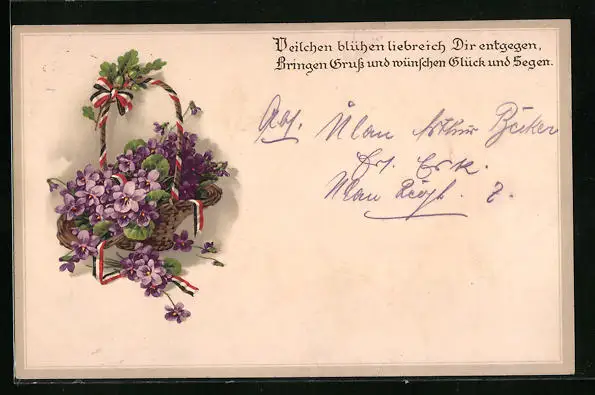 Veilchen blühen liebreich Dir entgegen,
Bringen Gruß und wünschen Glück und Segen.
Abs. Ulan Arthur Bäcker
Ers. Esk.
Ulan Regt. 2.